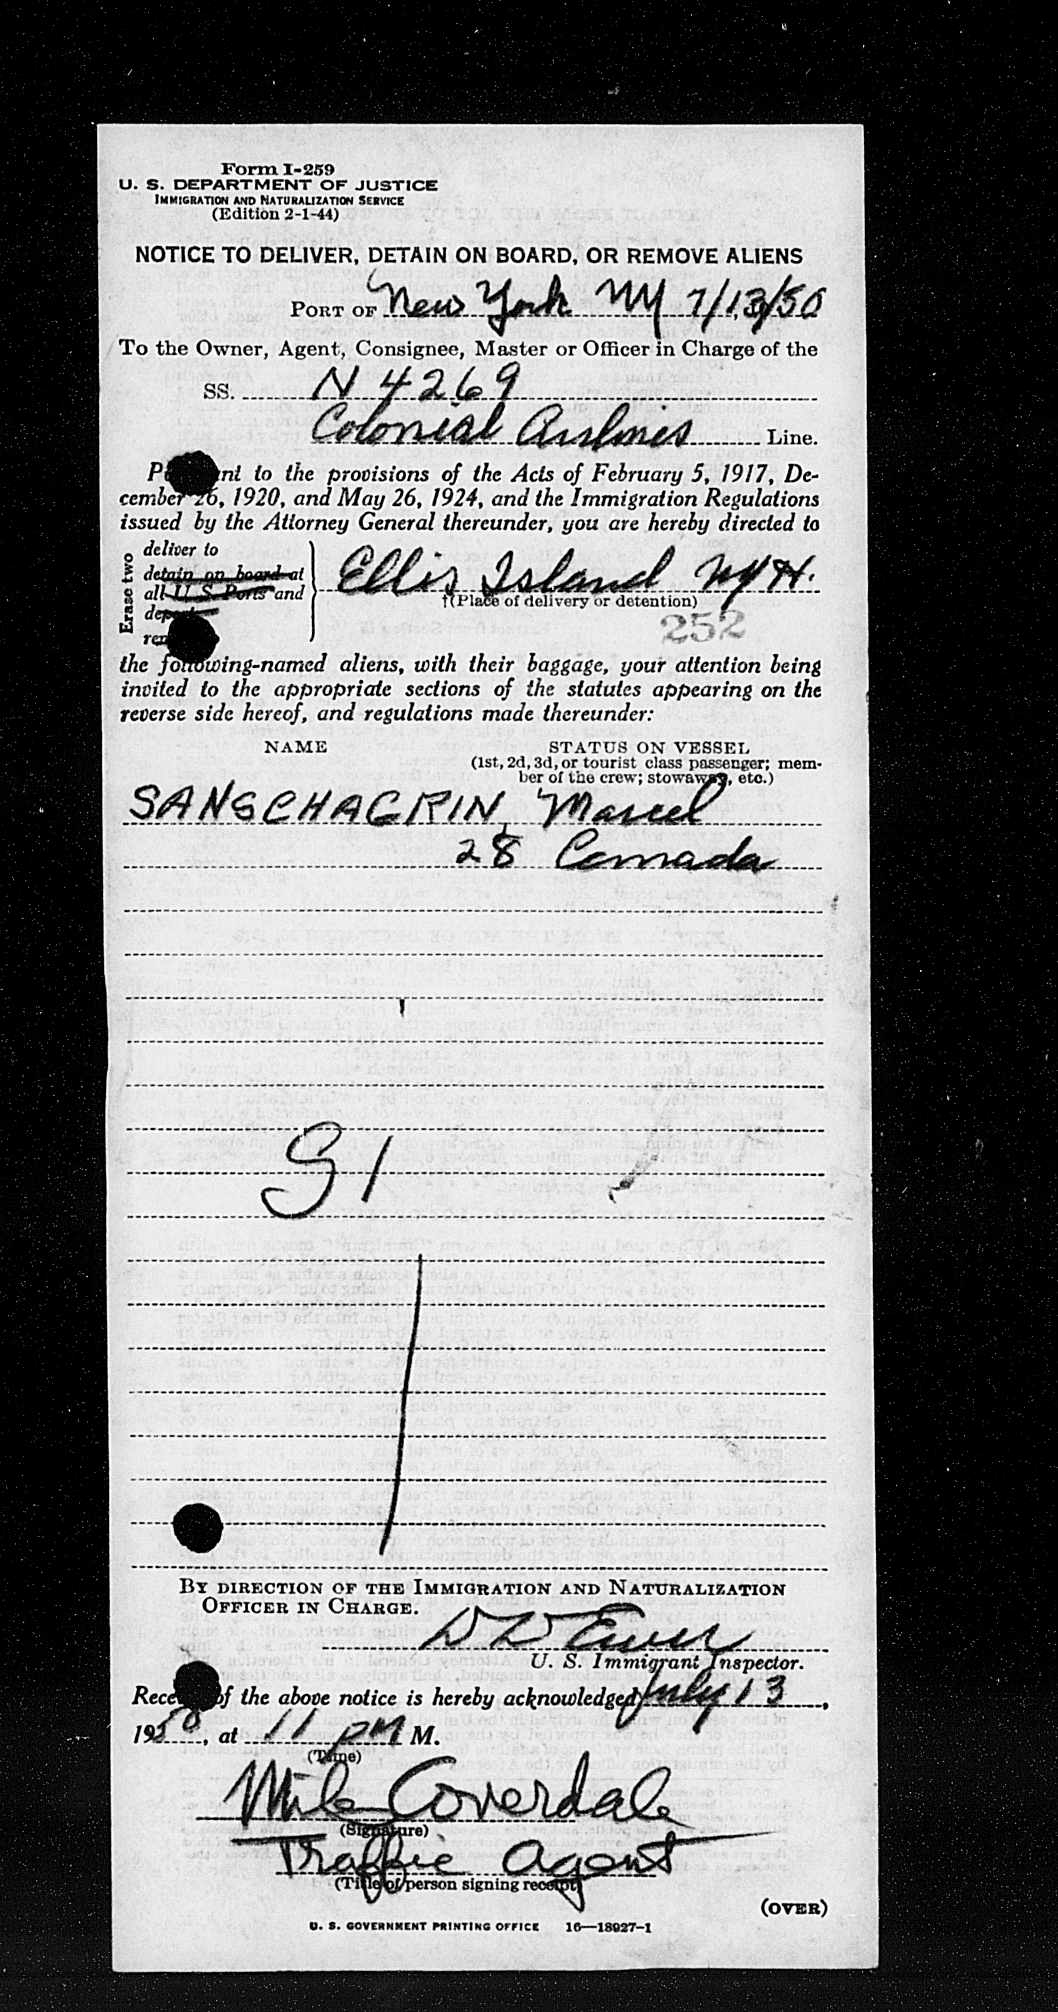 Form I-259
U. S. DEPARTMENT OF JUSTICE
IMMIGRATION AND NATURALIZATION SERVICE
(Edition 2-1-44)
NOTICE TO DELIVER, DETAIN ON BOARD, OR REMOVE ALIENS
PORT OF New York NY 7/13/50
To the Owner, Agent, Consignee, Master or Officer in Charge of the
SS. N 4269
Colonial Airlines Line.
to the provisions of the Acts of February 5, 1917, De-
cember 26, 1920, and May 26, 1924, and the Immigration Regulations
issued by the Attorney General thereunder, you are hereby directed to
Erase two
deliver to
detain on board at
all U S Ports and
Ellis Island NYH.
†(Place of delivery or detention)
252
the following-named aliens, with their baggage, your attention being
invited to the appropriate sections of the statutes appearing on the
reverse side hereof, and regulations made thereunder:
NAME STATUS ON VESSEL
(1st, 2d, 3d, or tourist class passenger; mem-
ber of the crew; stowaway, etc.)
SANSCHAGRIN, Marcel
28 Canada
S1
BY DIRECTION OF THE IMMIGRATION AND NATURALIZATION
OFFICER IN CHARGE.
U. S. Immigrant Inspector.
of the above notice is hereby acknowledged July 13,
1950, at 11 PM M.
(Time)
Mile Coverdale
(Signature)
Traffic Agent
(Title of person signing receipt)
(OVER)
U. S. GOVERNMENT PRINTING OFFICE 16—18927-1